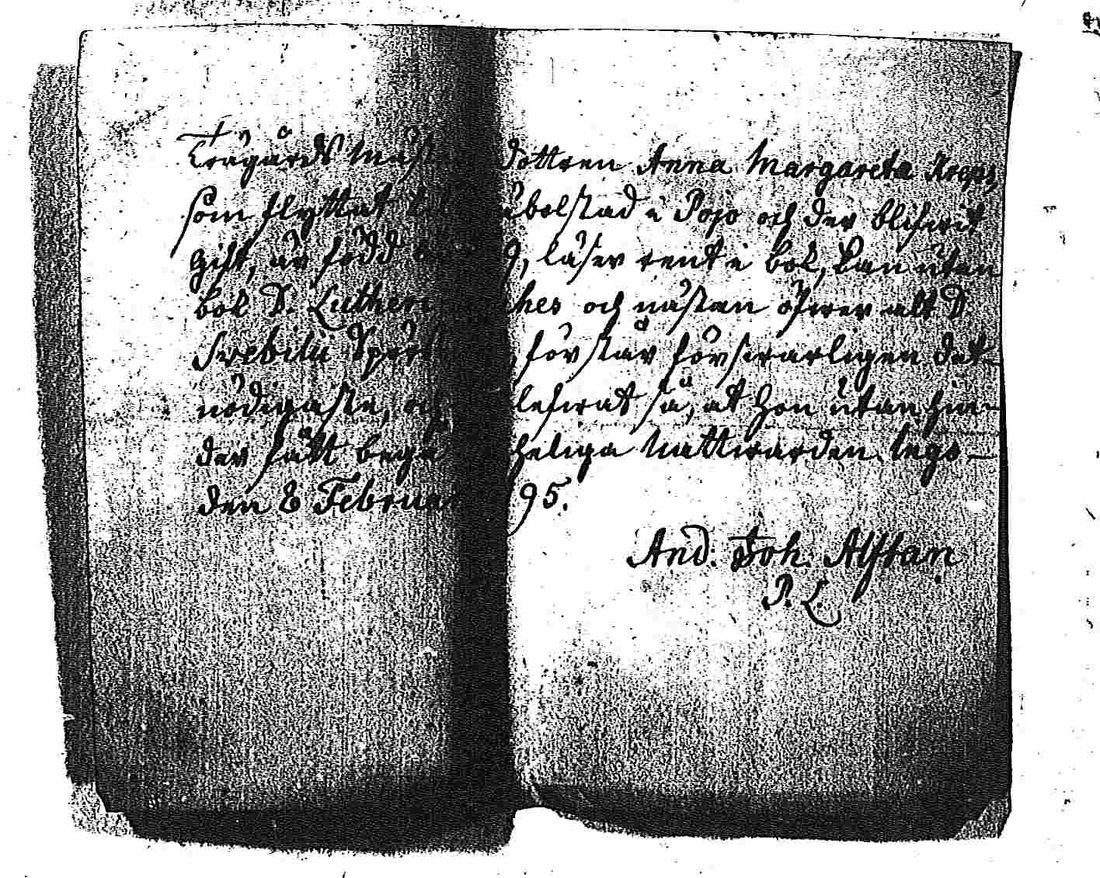 Trägårds Mäst dottren Anna Margareta
som flyttat til åbolstad i Pojo och der blifwit
gift, är född 9, läser rent i bok, kan utan
bok D. Lutheri ches och nästan öfwer alt D
Swebilii Spörs, förstår förswarligen det
nödigaste, och lefwat så, at hon utan hin-
der fått begå heliga Nattwarden.
den 8 Februar 95.
And. Joh. Alftan
P. L.